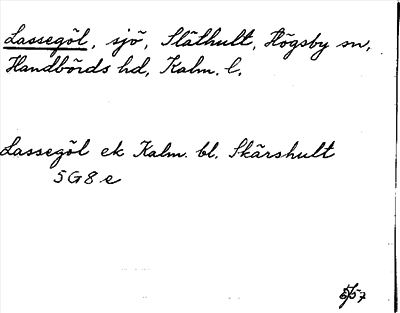 Lassegöl, sjö, Släthult, Högsby sn,
Handbörds hd, Kalm. l.
Lassegöl ek Kalm. bl. Skärshult
5G8e